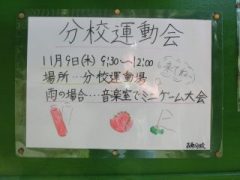 分校運動会
11月9日(木) 9:30〜12:00
場所…分校運動場
雨の場合…音楽室でミニゲーム大会